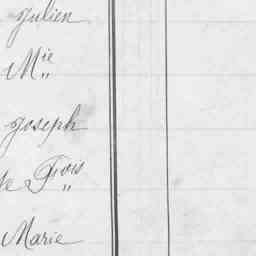 Julien
M^ie
Joseph
te F^ois
Marie